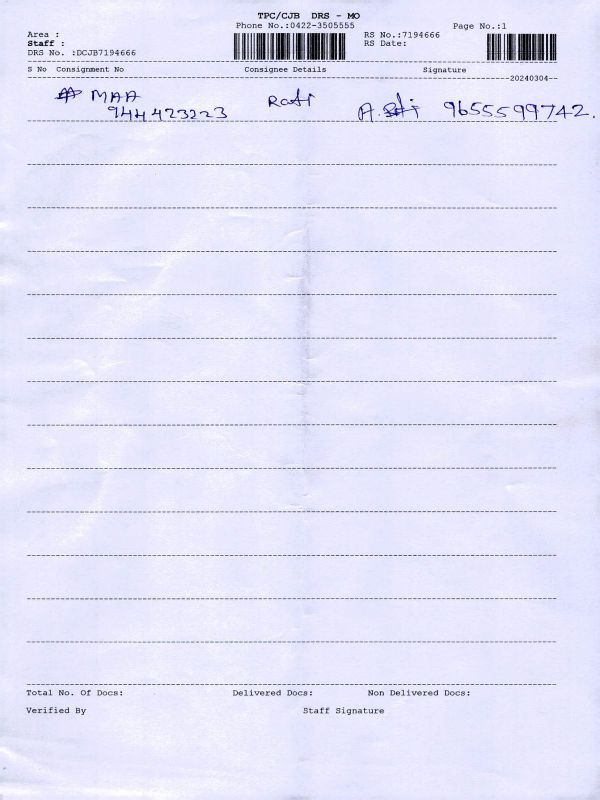 TPC/CJB DRS - MO
Phone No.:0422-3505555 Page No.:1
Area : RS No.:7194666
Staff : RS Date:
DRS No. :DCJB7194666
S No Consignment No Consignee Details Signature
20240304
MAA
944423223 A. 9655599742.
Total No. Of Docs: Delivered Docs: Non Delivered Docs:
Verified By Staff Signature